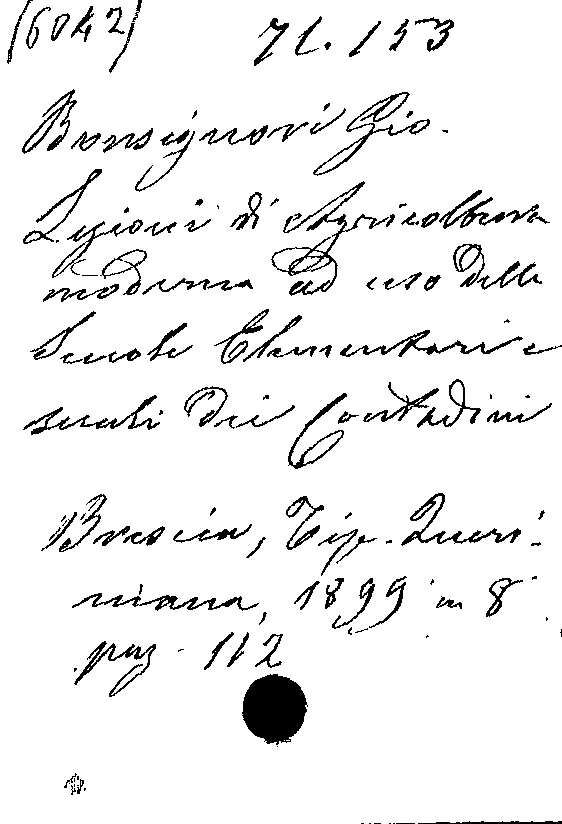 (6042)
71. 153
Bonsignori Gio.
Lezioni di Agricoltura
moderna ad uso delle
Scuole Elementari e
rurali dei Contadini
Brescia, Tip. Queri-
niana, 1899 in 8°
pag. 112